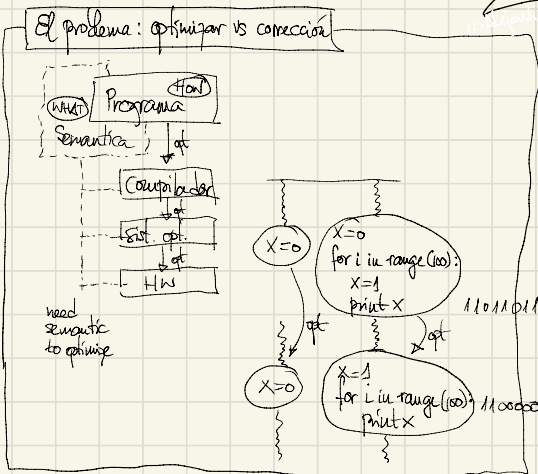 El problema: optimizar vs corrección
HOW
WHAT
Programa
Semantica
opt
Compilador
opt
Sist. opt.
opt
HW
need
semantic
to optimize
X=0
X=0
for i in range(100):
X=1
print X
11011011
opt
opt
X=0
X=1
for i in range(100):
print X
1100000